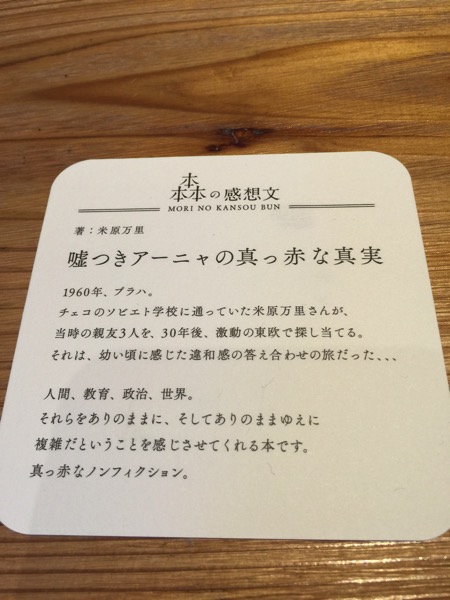 本本本の感想文
MORI NO KANSOU BUN
著：米原万里
嘘つきアーニャの真っ赤な真実
1960年、プラハ。
チェコのソビエト学校に通っていた米原万里さんが、
当時の親友3人を、30年後、激動の東欧で探し当てる。
それは、幼い頃に感じた違和感の答え合わせの旅だった、、、
人間、教育、政治、世界。
それらをありのままに、そしてありのままゆえに
複雑だということを感じさせてくれる本です。
真っ赤なノンフィクション。